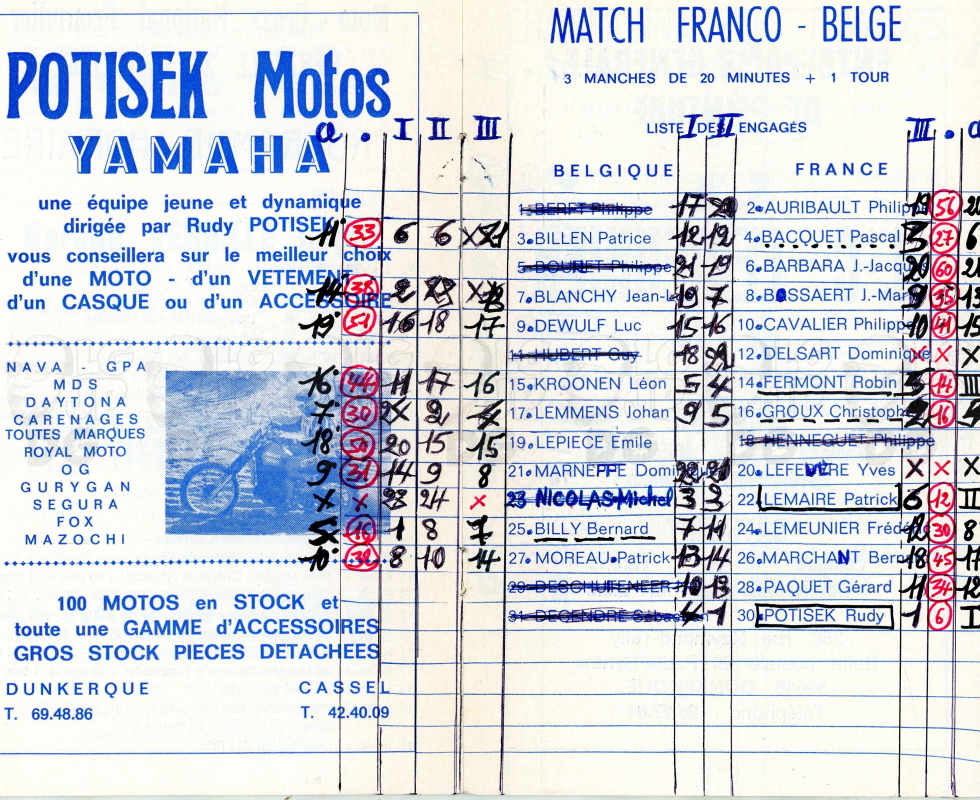 POTISEK Motos
YAMAHA
une équipe jeune et dynamique
dirigée par Rudy POTISEK
vous conseillera sur le meilleur choix
d'une MOTO - d'un VETEMENT
d'un CASQUE ou d'un ACCESSOIRE
NAVA - GPA
MDS
DAYTONA
CARENAGES
TOUTES MARQUES
ROYAL MOTO
OG
GURYGAN
SEGURA
FOX
MAZOCHI
100 MOTOS en STOCK et
toute une GAMME d'ACCESSOIRES
GROS STOCK PIECES DETACHEES
DUNKERQUE CASSEL
T. 69.48.86 T. 42.40.09
a . I II III
11 33 6 6
14 38 2
19 51 16 18 17
16 44 11 17 16
7 30 2
18 50 20 15 15
9 31 14 9 8
X X 23 24 X
16 1 8
10 32 8 10 14
MATCH FRANCO - BELGE
3 MANCHES DE 20 MINUTES + 1 TOUR
LISTE DES ENGAGÉS
I II III . a
BELGIQUE
1. BERFT Philippe
3. BILLEN Patrice
5. BOURET Philippe
7. BLANCHY Jean-L
9. DEWULF Luc
11. HUBERT Guy
15. KROONEN Léon
17. LEMMENS Johan
19. LEPIECE Emile
21. MARNEFFE Dominique
23 NICOLAS Michel
25. BILLY Bernard
27. MOREAU Patrick
29. DESCHUTENEER
31. DECENDRE Sébastien
17
12 12
21 19
19 7
15 16
18
5 4
9 5
3 3
7 11
13 14
10 13
4 1
FRANCE
2. AURIBAULT Philippe
4. BACQUET Pascal
6. BARBARA J.-Jacqu
8. BOSSAERT J.-Mar
10. CAVALIER Philippe
12. DELSART Dominique
14. FERMONT Robin
16. GROUX Christoph
18 HENNEGUET Philippe
20. LEFEVERE Yves
22. LEMAIRE Patrick
24. LEMEUNIER Frédé
26. MARCHANT Bern
28. PAQUET Gérard
30. POTISEK Rudy
19 56
3 27 6
20 60
9 35 13
10 41 15
X X X
14 III
2 16
X X X
6 12 II
12 30 8
18 45 17
11 34 12
1 6 I